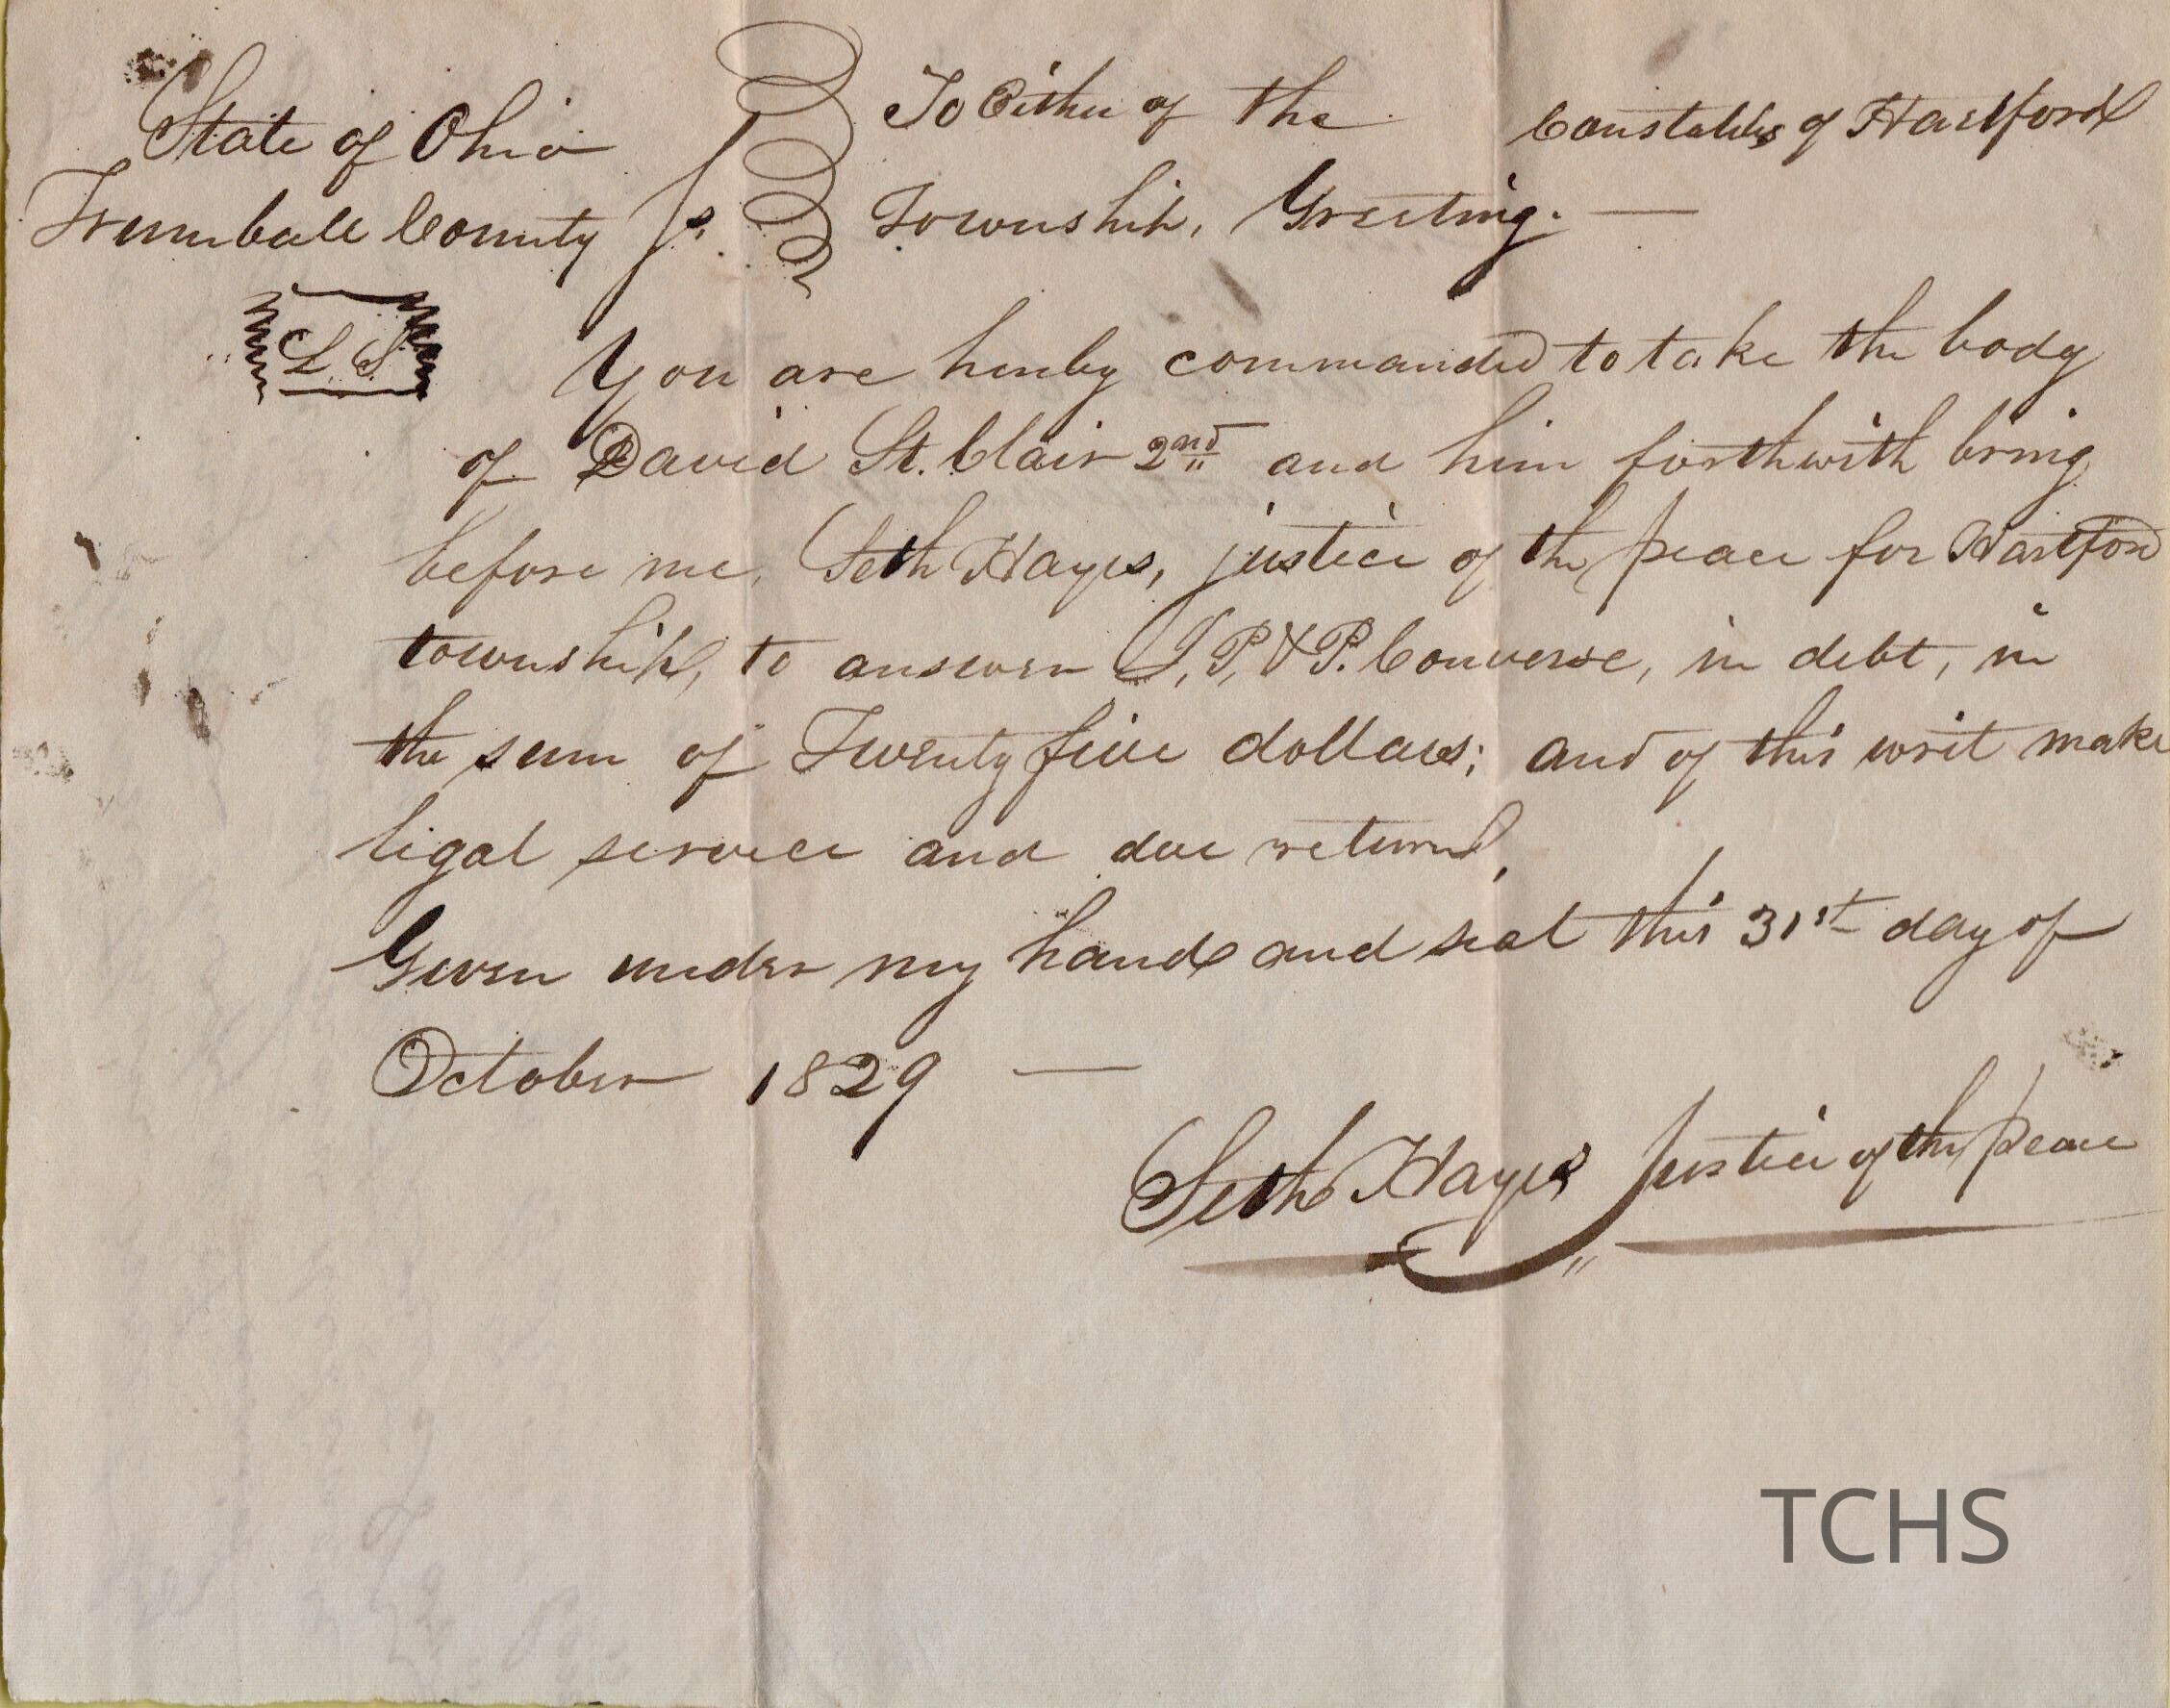 State of Ohio } To Either of the Constables of Hartford
Trumball County ss. } Township, Greeting. —
L S
You are hereby commanded to take the body
of David St. Clair 2nd and him forthwith bring
before me, Seth Hayes, justice of the peace for Hartford
township, to answer J. P. & P. Converse, in debt, in
the sum of Twenty five dollars; and of this writ make
legal service and due return,
Given under my hand and seal this 31st day of
October 1829 —
Seth Hayes Justice of the peace
TCHS